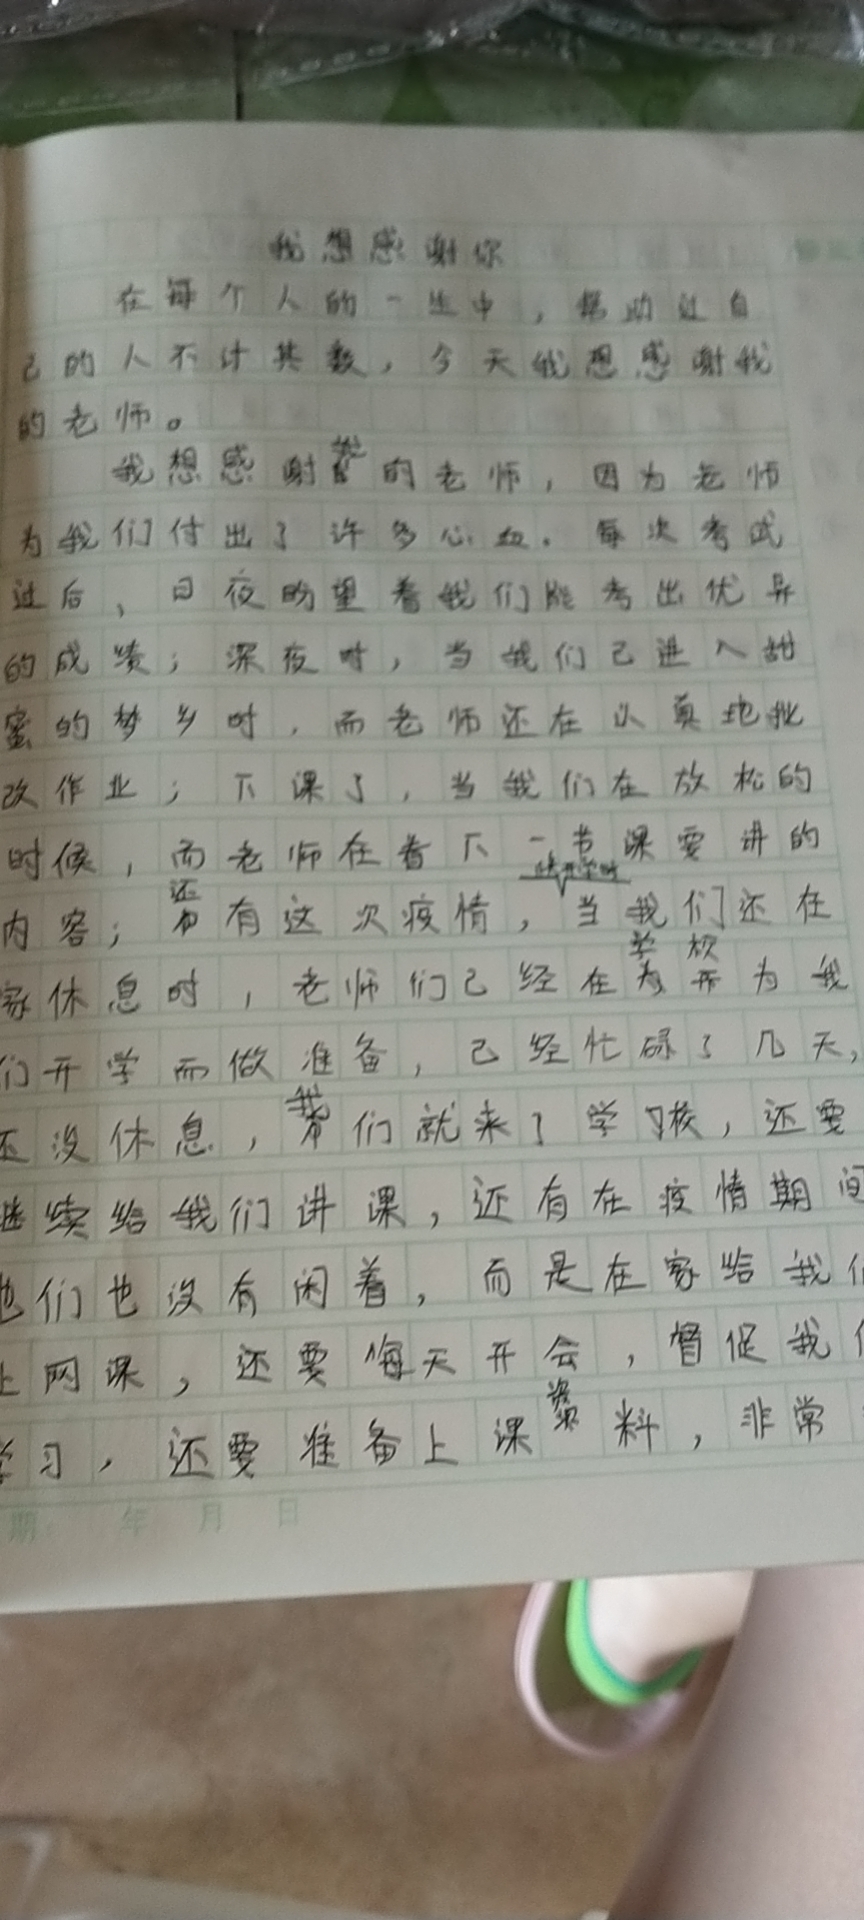 我想感谢你
在每个人的一生中，帮助过自
己的人不计其数，今天我想感谢我
的老师。
我想感谢我的老师，因为老师
为我们付出了许多心血。每次考试
过后，日夜盼望着我们能考出优异
的成绩；深夜时，当我们已进入甜
蜜的梦乡时，而老师还在认真地批
改作业；下课了，当我们在放松的
时候，而老师在看下一节课要讲的
内容；还有这次疫情，快开学时当我们还在
家休息时，老师们已经在学校为我
们开学而做准备，已经忙碌了几天，
还没休息，我们就来了学校，还要
继续给我们讲课，还有在疫情期间
他们也没有闲着，而是在家给我们
上网课，还要每天开会，督促我们
学习，还要准备上课资料，非常
期 年 月 日